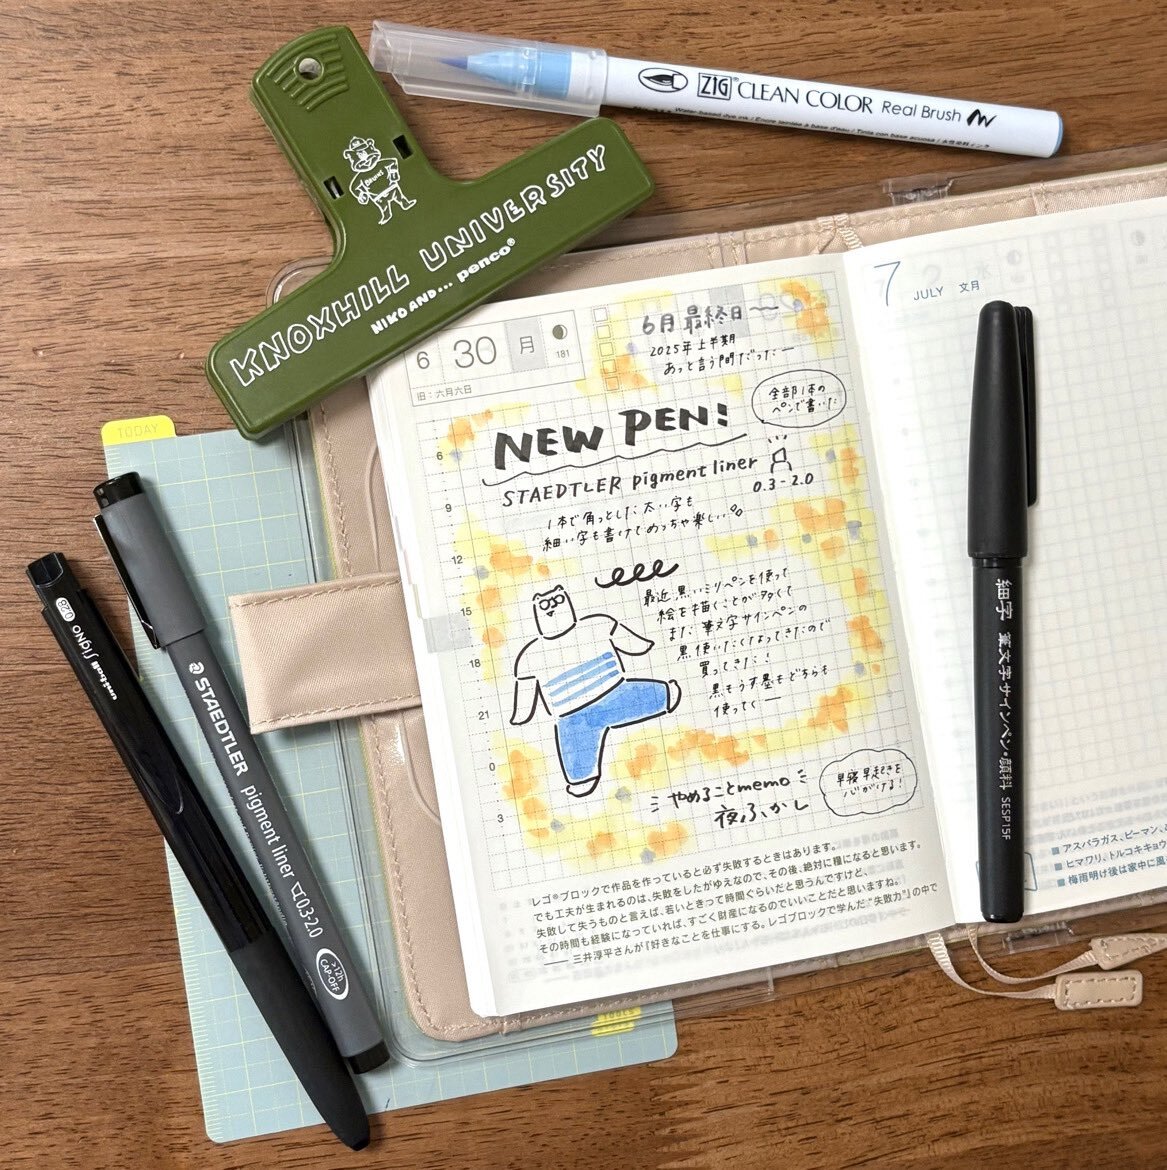 ZIG® CLEAN COLOR Real Brush
Water-based dye ink / Encre teintée à base d'eau / Tinta con base acuosa / 水性染料インク
BRUINS
KNOXHILL UNIVERSITY
NIKO AND... penco®
TODAY
6 30 月
181
旧:六月六日
6月最終日
2025年上半期
あっと言う間だった
全部1本の
ペンで書いた
NEW PEN!
STAEDTLER pigment liner
0.3-2.0
1本で角っとした太い字も
細い字も書けてめっちゃ楽しい
最近黒いミリペンを使って
絵を描くことが多くて
また筆文字サインペンの
黒使いたくなってきたので
買ってきた!
黒もうす墨もどちらも
使ってく
6
9
12
15
18
21
0
3
やめることmemo
夜ふかし
早寝早起きを
心がける!
レゴ®ブロックで作品を作っていると必ず失敗するときはあります。
でも工夫が生まれるのは、失敗をしたがゆえなので、その後、絶対に糧になると思います。
失敗して失うものと言えば、若いときって時間ぐらいだと思うんですけど、
その時間も経験になっていれば、すごく財産になるのでいいことだと思いますね。
三井淳平さんが『好きなことを仕事にする。レゴブロックで学んだ“失敗力”』の中で
7 JULY 文月
アスパラガス、ピーマン、
ヒマワリ、トルコキキョウ
梅雨明け後は家中に風
細字 筆文字サインペン・顔料 SESP15F
uni-ball Signo 0.28
STAEDTLER pigment liner 03-2.0
>12h
CAP-OFF
TOOLS